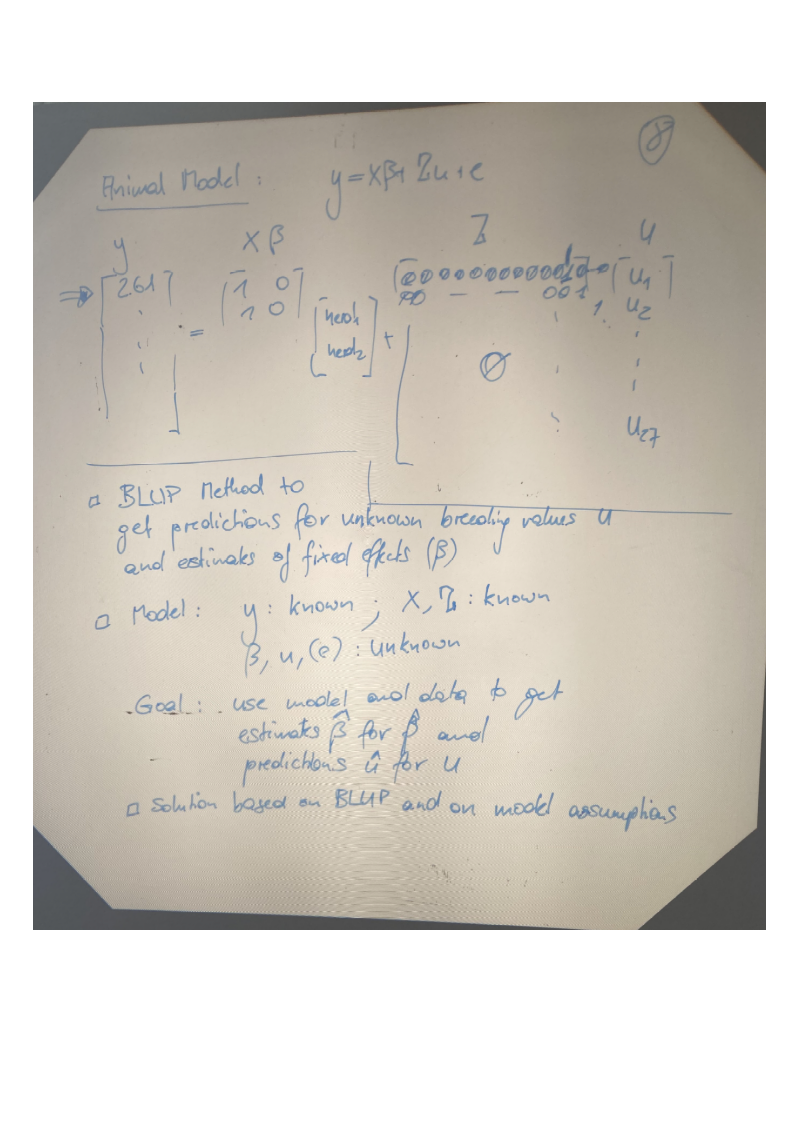 8
Animal Model : y = Xβ + Zu + e
y X β Z u
261 1 0 u1
1 0 herd1 0 0 1 1 u2
= herd2 + ∅
u27
□ BLUP Method to
get predictions for unknown breeding values u
and estimates of fixed effects (β)
□ Model : y : known ; X, Z : known
β, u, (e) : unknown
Goal : use model and data to get
estimates β̂ for β and
predictions û for u
□ Solution based on BLUP and on model assumptions